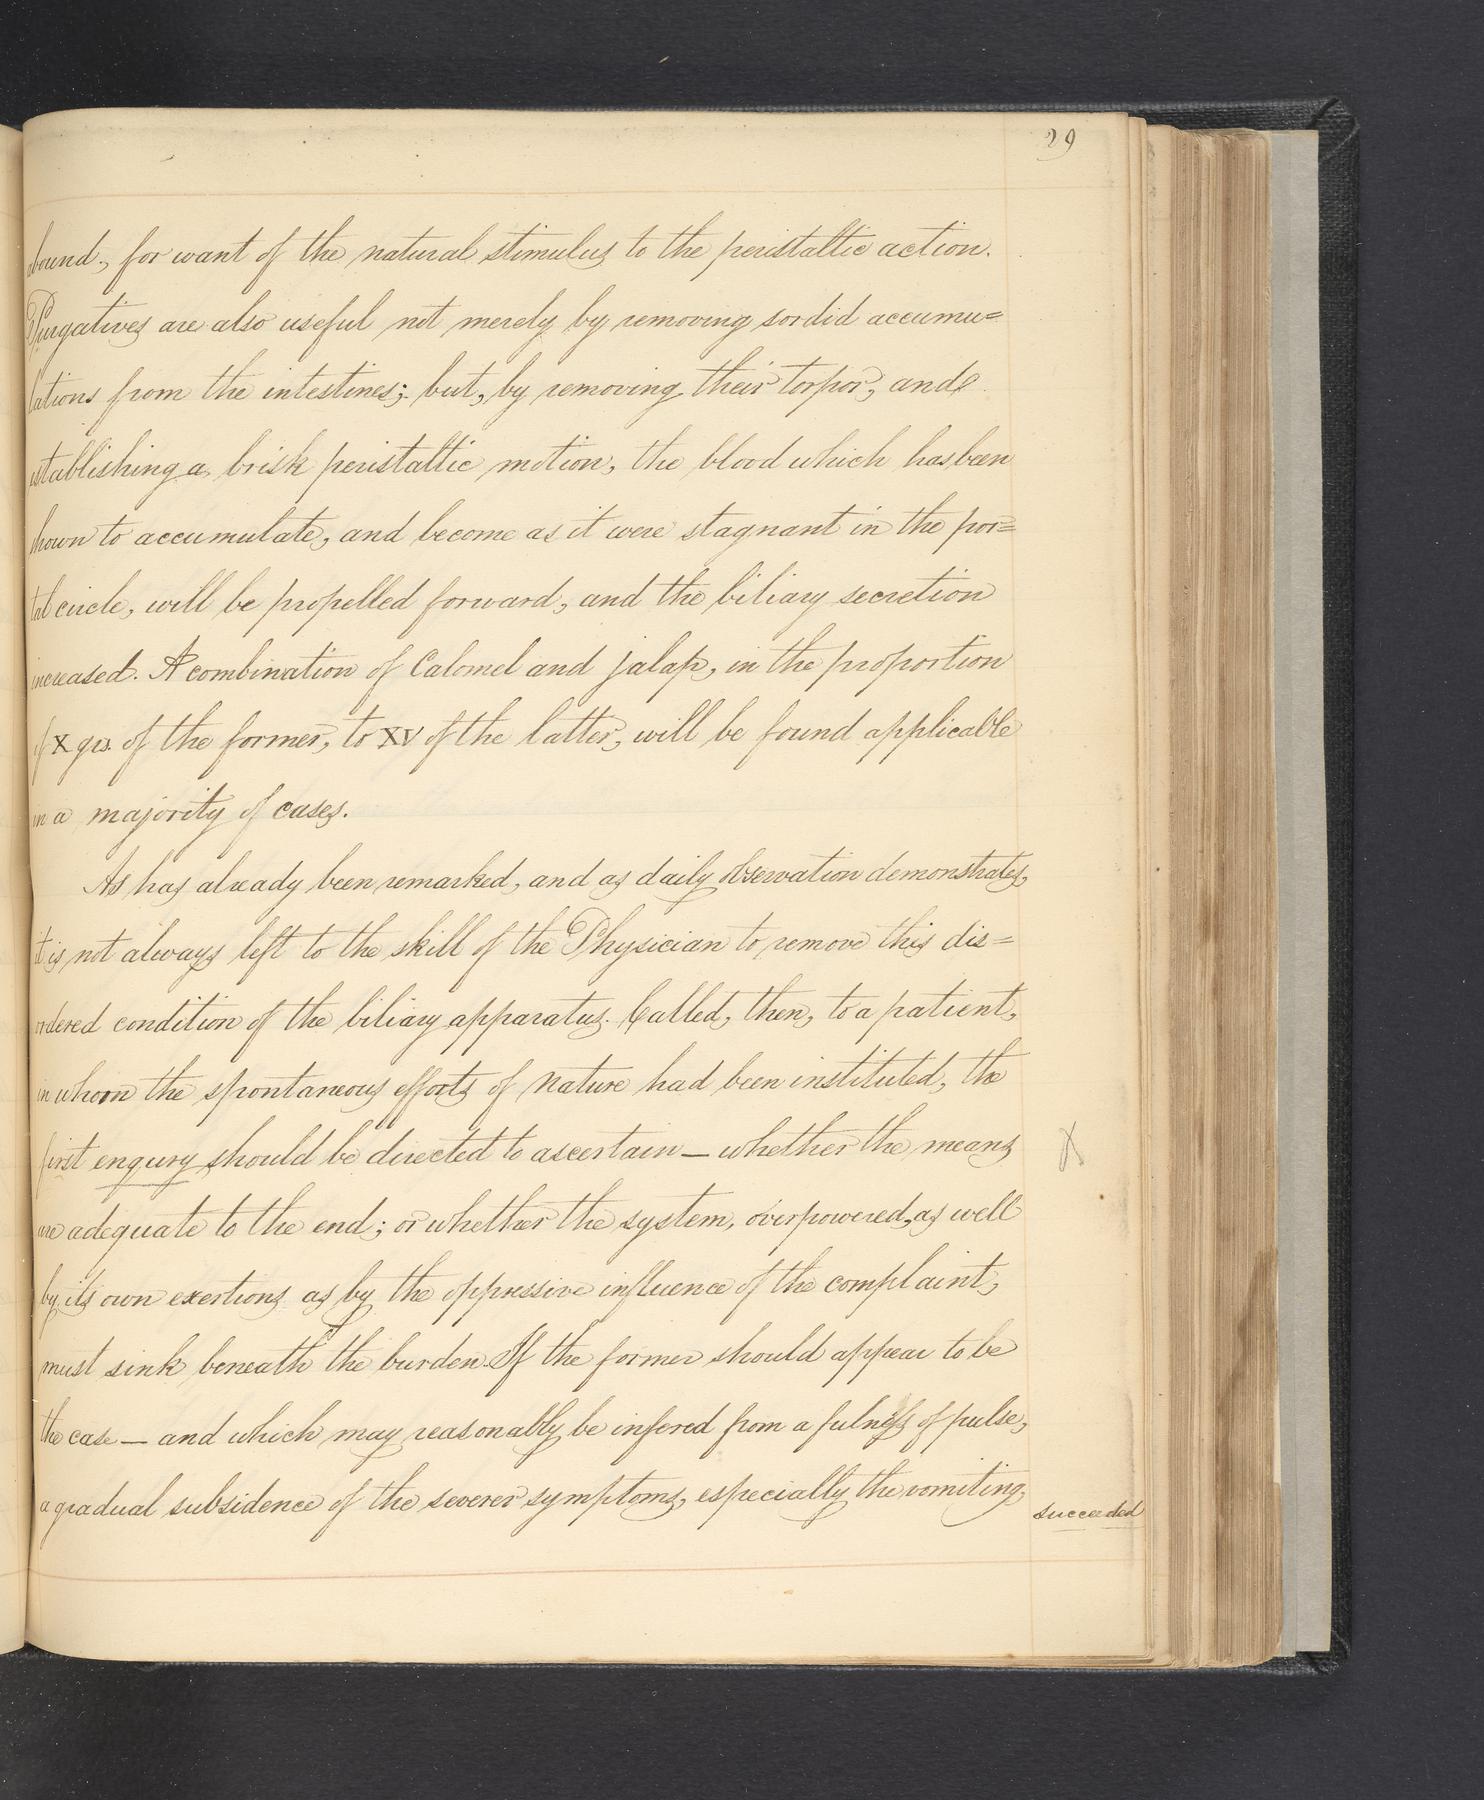 29
bound, for want of the natural stimulus to the peristaltic action.
Purgatives are also useful not merely by removing sordid accumu=
lations from the intestines; but, by removing their torpor, and
establishing a brisk peristaltic motion, the blood which has been
shown to accumulate, and become as it were stagnant in the por=
tal circle, will be propelled forward, and the biliary secretion
increased. A combination of Calomel and jalap, in the proportion
of X grs. of the former, to XV of the latter, will be found applicable
in a majority of cases.
As has already been remarked, and as daily observation demonstrates,
it is not always left to the skill of the Physician to remove this dis=
ordered condition of the biliary apparatus. Called, then, to a patient,
in whom the spontaneous efforts of nature had been instituted, the
first enquiry should be directed to ascertain — whether the means
X
are adequate to the end; or whether the system, overpowered, as well
by its own exertions as by the oppressive influence of the complaint,
must sink beneath the burden. If the former should appear to be
the case — and which may reasonably be infered from a fulness of pulse,
a gradual subsidence of the severer symptoms, especially the vomiting,
succeeded